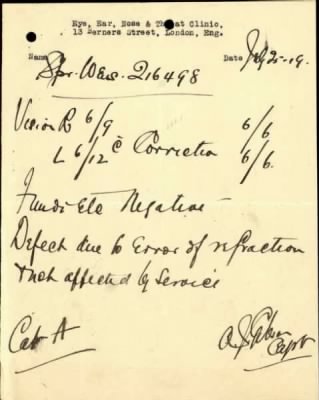 Eye, Ear, Nose & Throat Clinic,
13 Berners Street, London, Eng.
Name Spr. 216498 Date July 25-19.
Vision R 6/9 6/6
L 6/12 c̄ Correction 6/6.
Fundi Etc Negative
Defect due to Error of refraction
& not affected by Service
Cat A
Capt